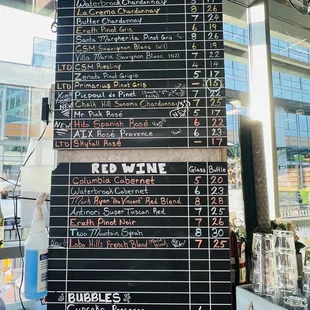 Waterbrook Chardonnay 5 22
La Crema Chardonnay 8 26
Butter Chardonnay 7 24
Erath Pinot Gris 6 23
Santa Margherita Pinot Gris 8 26
CSM Sauvignon Blanc 6 23
Villa Maria Sauvignon Blanc (NZ) 7 22
LTD CSM Riesling 4 14
Zenato Pinot Grigio 5
LTD Primarius Pinot Gris - 15
Picpoul de Pinet 7 22
NEW Chalk Hill Sonoma Chardonnay 7 25
Mr Pink Rosé 5
NEW Hito Spanish Rosé 6 23
AIX Rosé Provence 6 23
LTD Skyfall Rosé - 17
RED WINE Glass Bottle
Columbia Cabernet 5 20
Waterbrook Cabernet 6 23
Mark Ryan "the Vincent" Red Blend 8 28
Antinori Super Tuscan Red 7 25
Erath Pinot Noir 7 26
Two Mountain Syrah 8 30
Lobo Hills French Blend New 7 25
BUBBLES